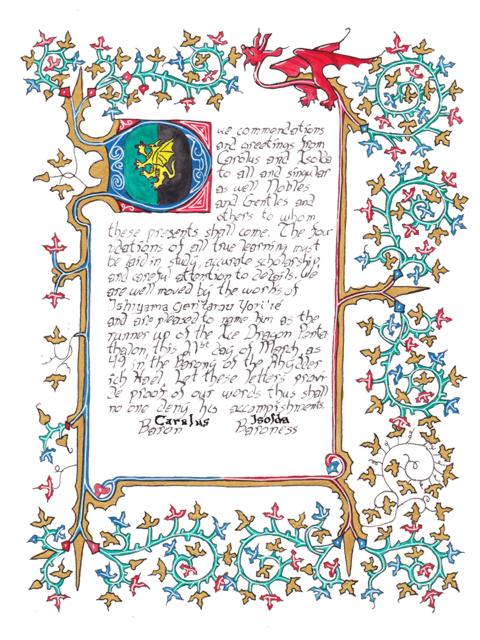 we commendations
and greetings from
Carolus and Isolda
to all and singular
as well Nobles
and Gentles and
others to whom
these presents shall come. The foun
dations of all true learning must
be laid in study, accurate scholarship,
and careful attention to details. We
are well moved by the works of
Ishiyama Gentarou Yori'ie
and are pleased to name him as the
runner up of the Ice Dragon Penta
thalon, this 21st day of March as
49, in the Barony of the Rhydder
ich Hael. Let these letters provi
de proof of our words thus shall
no one deny his accomplishments.
Carolus Isolda
Baron Baroness